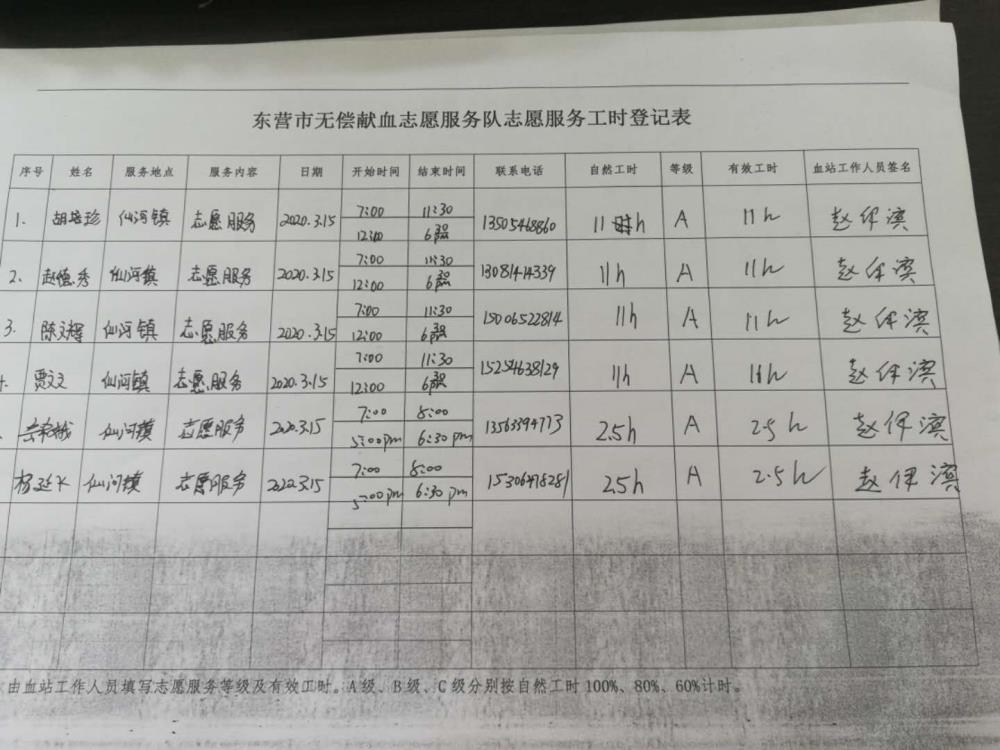 东营市无偿献血志愿服务队志愿服务工时登记表
序号 姓名 服务地点 服务内容 日期 开始时间 结束时间 联系电话 自然工时 等级 有效工时 血站工作人员签名
1. 胡培珍 仙河镇 志愿服务 2020.3.15 7:00 11:30 13505468860 11 h A 11h 赵保滨
12:00 6:30
2. 赵德秀 仙河镇 志愿服务 2020.3.15 7:00 11:30 13081414339 11h A 11h 赵保滨
12:00 6:30
3. 陈文辉 仙河镇 志愿服务 2020.3.15 7:00 11:30 15006522814 11h A 11h 赵保滨
12:00 6:30
贾文文 仙河镇 志愿服务 2020.3.15 7:00 11:30 15254638129 11h A 11h 赵保滨
12:00 6:30
仙河镇 志愿服务 2020.3.15 7:00 8:00 13563394773 2.5h A 2.5h 赵保滨
5:00pm 6:30pm
仙河镇 志愿服务 7:00 8:00 15306478281 2.5h A 2.5h 赵保滨
5:00pm 6:30pm
由血站工作人员填写志愿服务等级及有效工时。A级、B级、C级分别按自然工时100%、80%、60%计时。